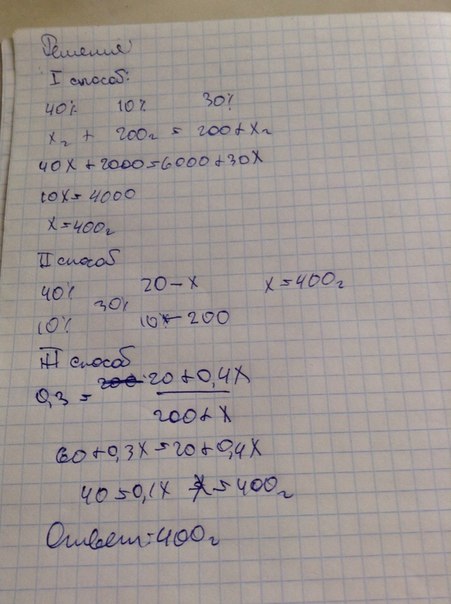 Решение
I способ:
40% 10% 30%
x г + 200 г = 200 + x г
40x + 2000 = 6000 + 30x
10x = 4000
x = 400 г
II способ
40% 20 - x x = 400 г
30%
10% 10 - 200
III способ
0,3 = 20 + 0,4x
200 + x
60 + 0,3x = 20 + 0,4x
40 = 0,1x x = 400 г
Ответ: 400 г